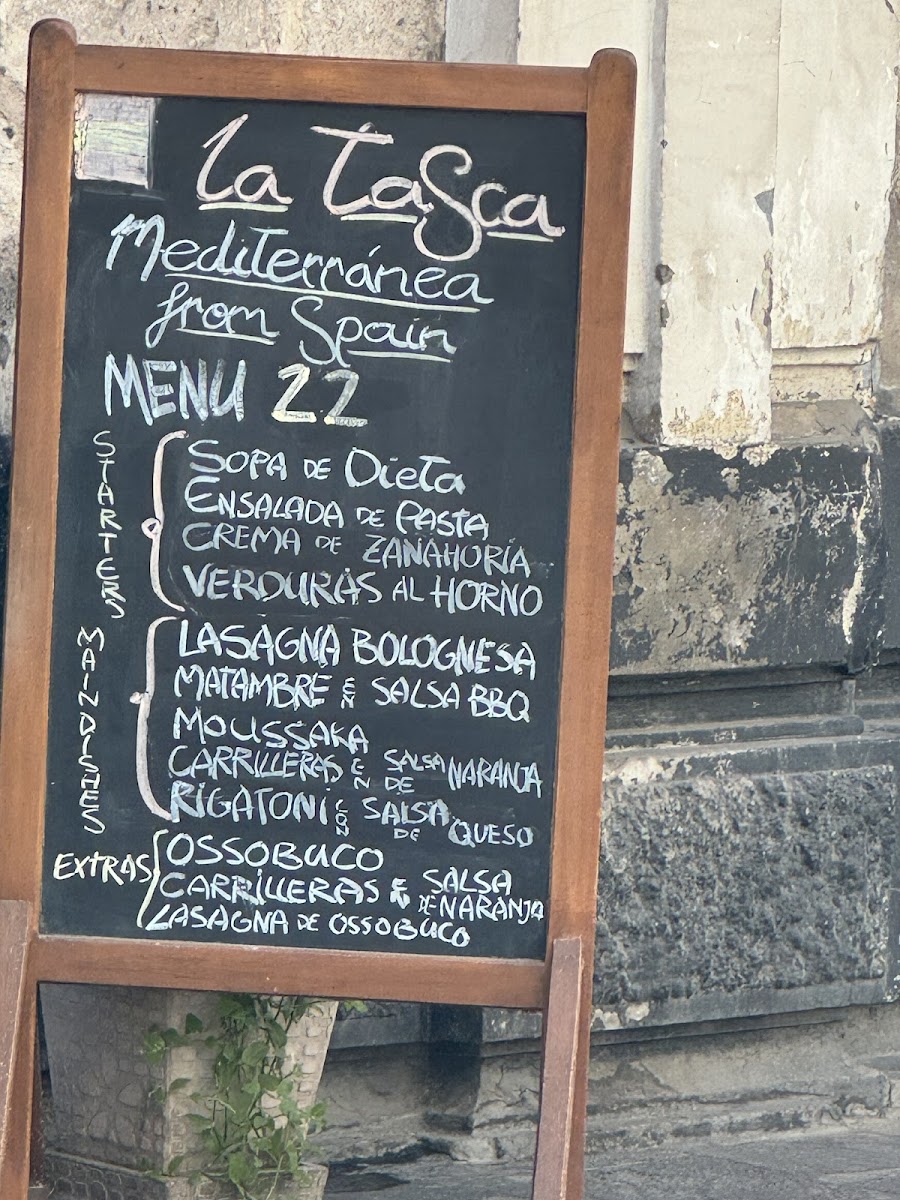 La Tasca
Mediterránea
from Spain
MENU 22
STARTERS
SOPA DE Dieta
ENSALADA DE PASTA
CREMA DE ZANAHORIA
VERDURAS AL HORNO
MAIN DISHES
LASAGNA BOLOGNESA
MATAMBRE EN SALSA BBQ
MOUSSAKA
CARRILLERAS EN SALSA DE NARANJA
RIGATONI CON SALSA DE QUESO
EXTRAS
OSSOBUCO
CARRILLERAS EN SALSA DE NARANJA
LASAGNA DE OSSOBUCO